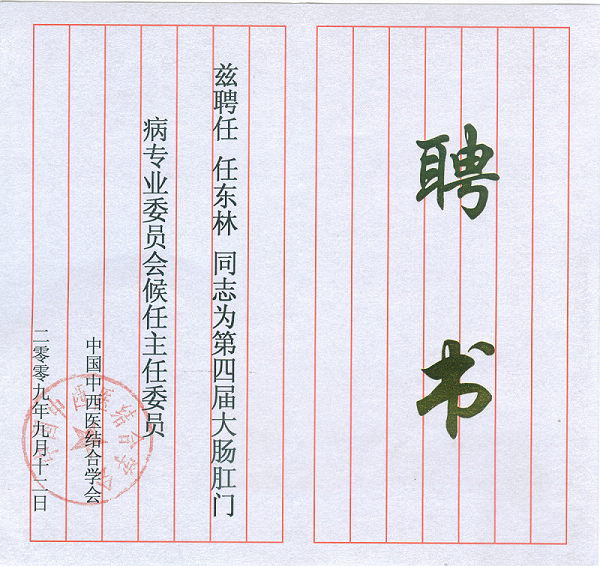 聘书
兹聘任 任东林 同志为第四届大肠肛门
病专业委员会候任主任委员
中国中西医结合学会
二零零九年九月十二日
中国中西医结合学会